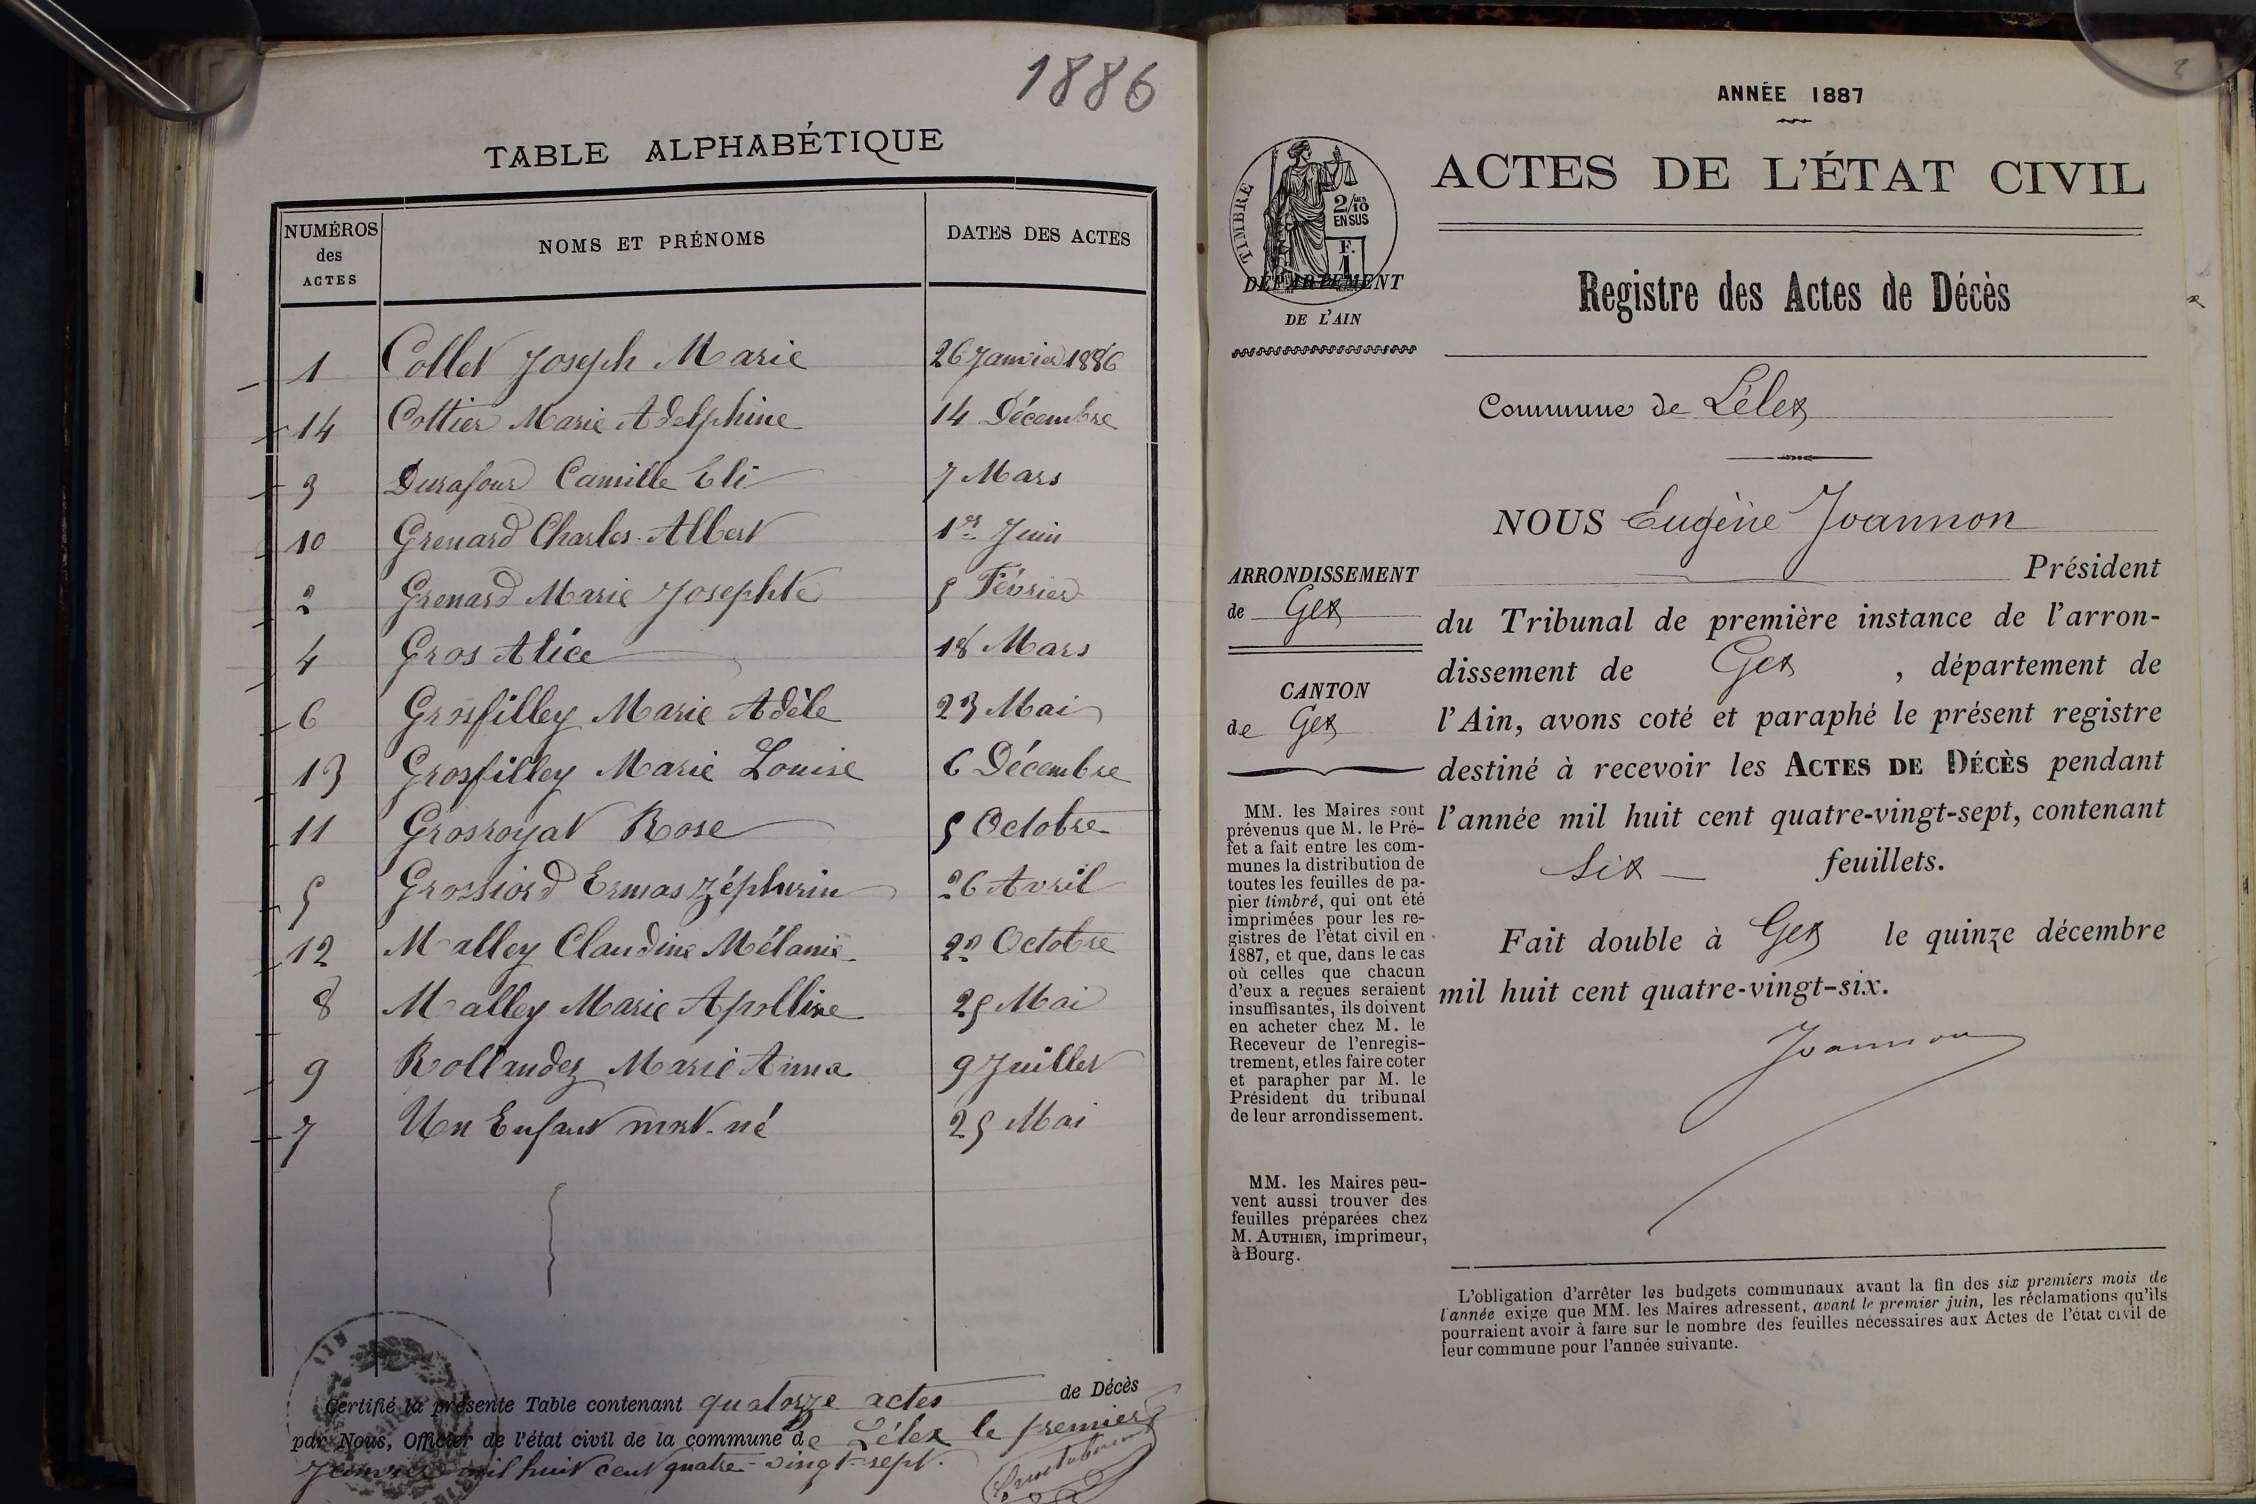 1886
TABLE ALPHABÉTIQUE
NUMÉROS des ACTES NOMS ET PRÉNOMS DATES DES ACTES
1 Collet Joseph Marie 26 Janvier 1886
14 Cottier Marie Adelphine 14 Décembre
3 Durafour Camille Eli 7 Mars
10 Grenard Charles Albert 1er Juin
2 Grenard Marie Josephte 5 Février
4 Gros Alice 18 Mars
6 Grosfilley Marie Adèle 23 Mai
13 Grosfilley Marie Louise 6 Décembre
11 Grosroyat Rose 5 Octobre
5 Grossiord Ermas Zéphurin 26 Avril
12 Malley Claudine Mélanie 22 Octobre
8 Malley Marie Apolline 25 Mai
9 Rollandez Marie Anna 9 Juillet
7 Un Enfant mort-né 25 Mai
Certifié la présente Table contenant quatorze actes de Décès
par Nous, Officier de l'état civil de la commune de Lélex le premier
Janvier mil huit cent quatre-vingt-sept.
ANNÉE 1887
TIMBRE
2/10
EN SUS
F.
1
DÉPARTEMENT
DE L'AIN
ACTES DE L'ÉTAT CIVIL
Registre des Actes de Décès
Commune de Lélex
ARRONDISSEMENT
de Gex
CANTON
de Gex
MM. les Maires sont
prévenus que M. le Pré-
fet a fait entre les com-
munes la distribution de
toutes les feuilles de pa-
pier timbré, qui ont été
imprimées pour les re-
gistres de l'état civil en
1887, et que, dans le cas
où celles que chacun
d'eux a reçues seraient
insuffisantes, ils doivent
en acheter chez M. le
Receveur de l'enregis-
trement, et les faire coter
et parapher par M. le
Président du tribunal
de leur arrondissement.
MM. les Maires peu-
vent aussi trouver des
feuilles préparées chez
M. AUTHIER, imprimeur,
à Bourg.
NOUS Eugène Joannon
Président
du Tribunal de première instance de l'arron-
dissement de Gex, département de
l'Ain, avons coté et paraphé le présent registre
destiné à recevoir les ACTES DE DÉCÈS pendant
l'année mil huit cent quatre-vingt-sept, contenant
Six feuillets.
Fait double à Gex le quinze décembre
mil huit cent quatre-vingt-six.
Joannon
L'obligation d'arrêter les budgets communaux avant la fin des six premiers mois de
l'année exige que MM. les Maires adressent, avant le premier juin, les réclamations qu'ils
pourraient avoir à faire sur le nombre des feuilles nécessaires aux Actes de l'état civil de
leur commune pour l'année suivante.